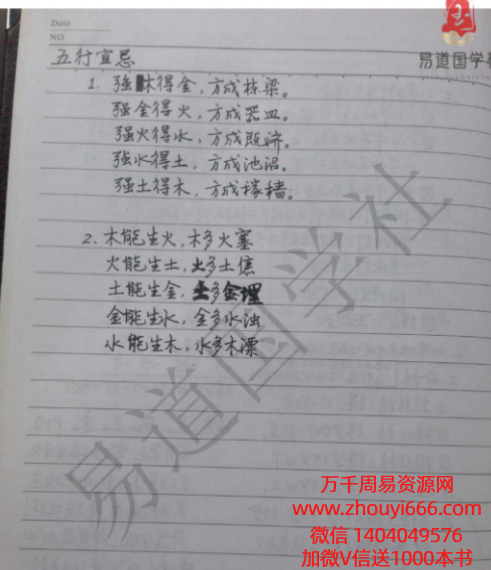 Date
NO
易道国学
五行宜忌
1. 强木得金，方成栋梁。
强金得火，方成器皿。
强火得水，方成既济。
强水得土，方成池沼。
强土得木，方成稼穑。
2. 木能生火，木多火塞
火能生土，火多土焦
土能生金，土多金埋
金能生水，金多水浊
水能生木，水多木漂
易道国学社
万千周易资源网
www.zhouyi666.com
微信 1404049576
加微V信送1000本书